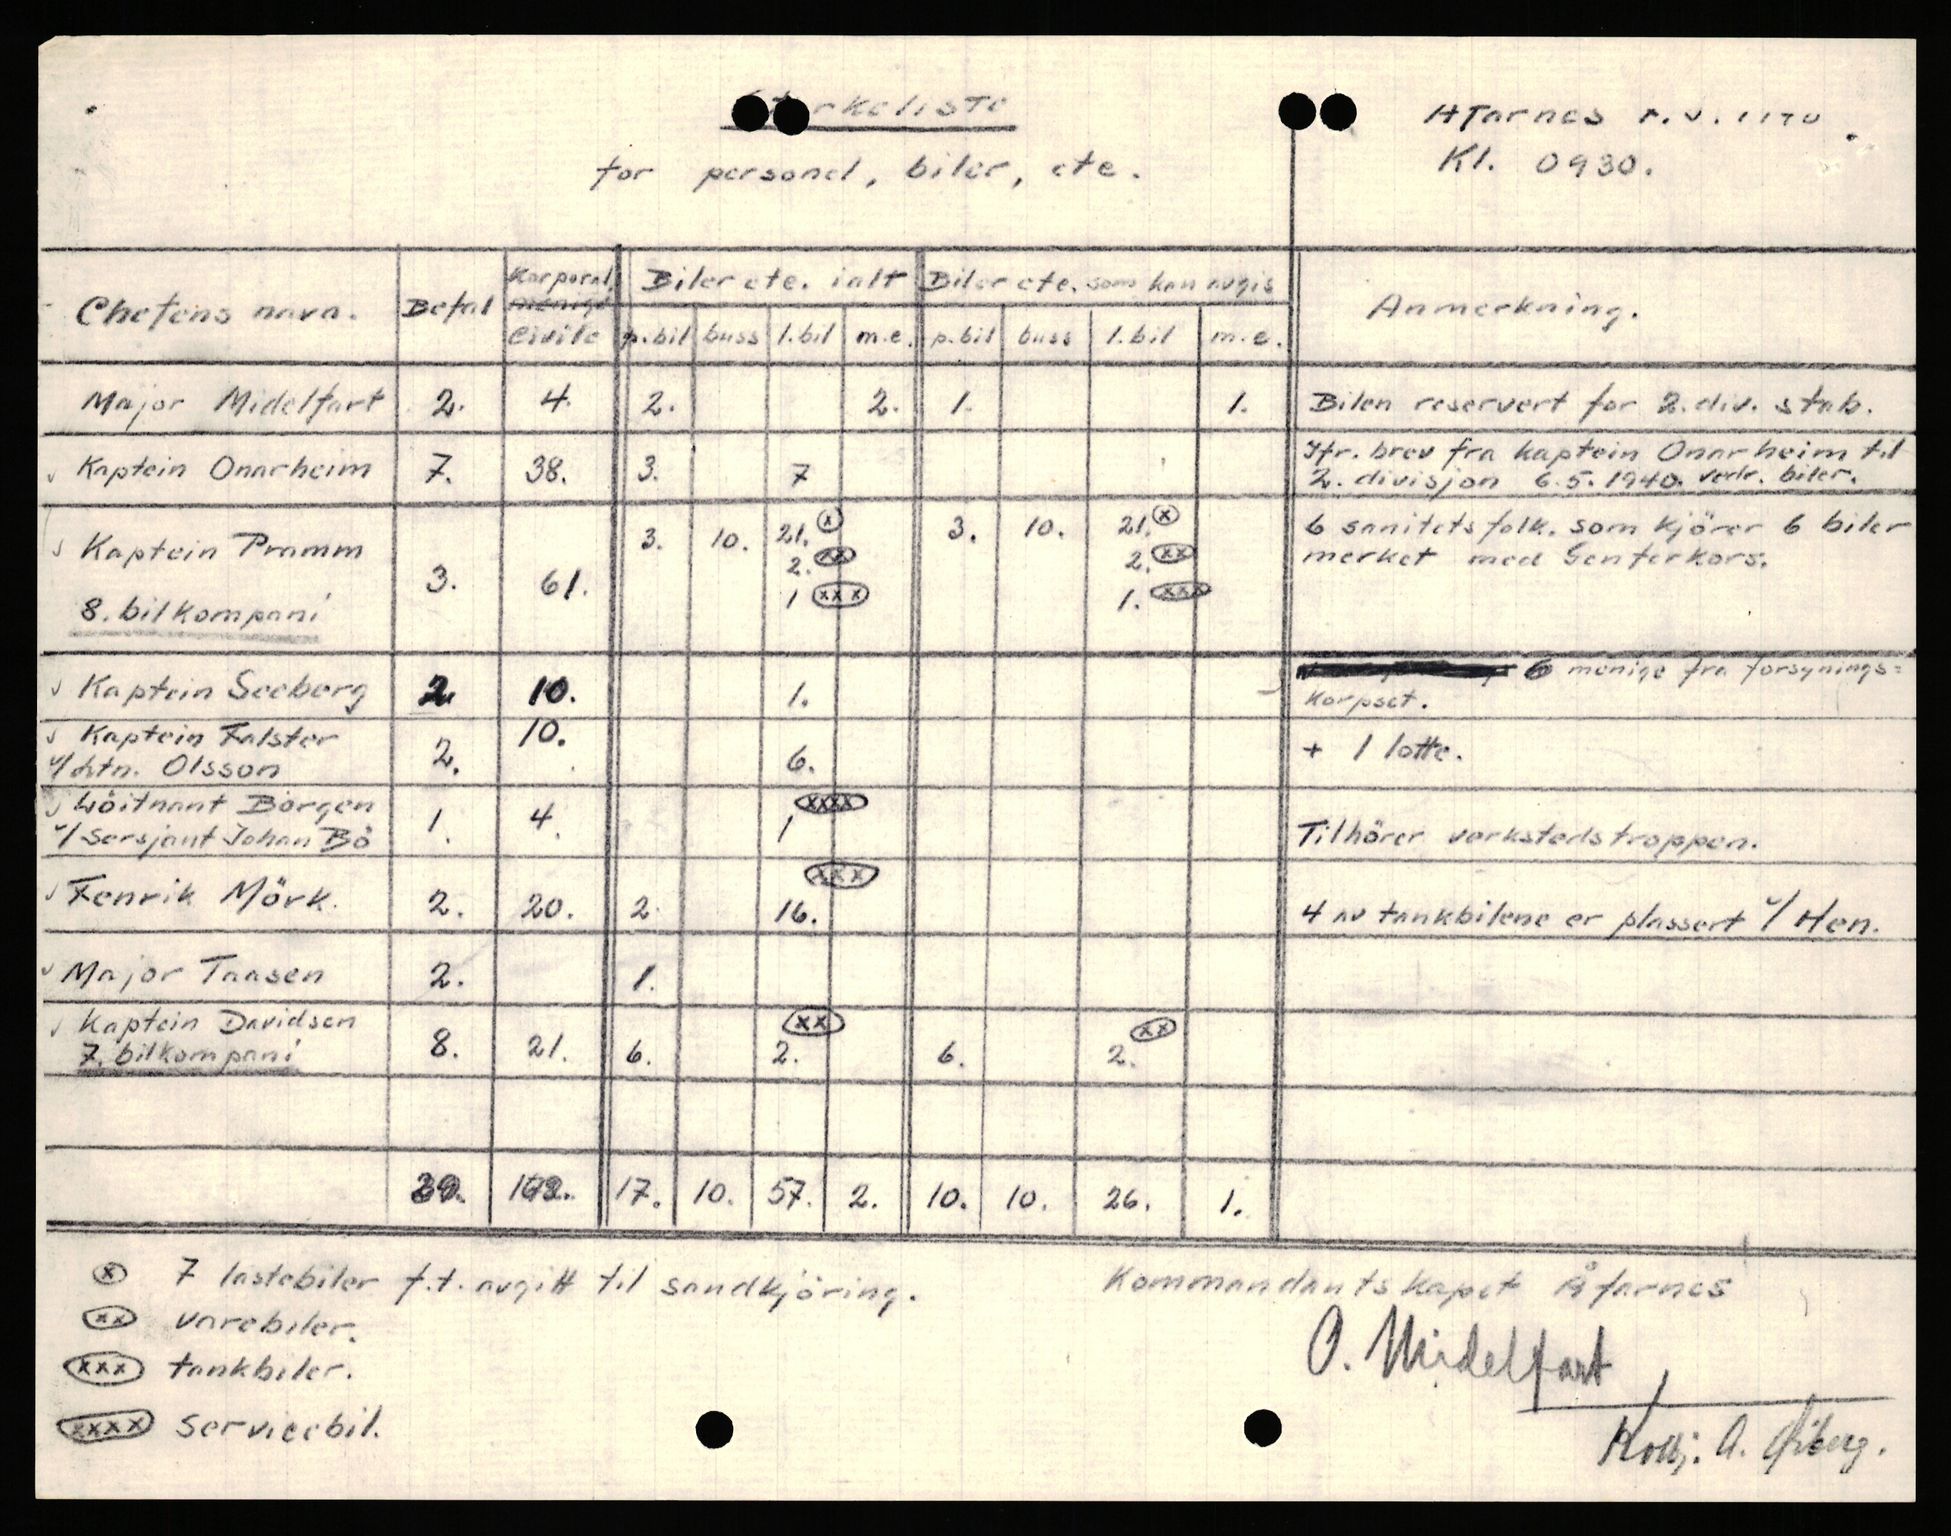 for personel, biler, etc.
Kl. 0930.
Chefens navn. Befal Korporal, menige civile Biler etc. ialt Biler etc. som kan avgis Anmerkning.
p.bil buss l.bil m.c. p.bil buss l.bil m.c.
Major Midelfart 2. 4. 2. 2. 1. 1. Bilen reservert for 2. div. stab.
Kaptein Onarheim 7. 38. 3. 7 Jfr. brev fra kaptein Onarheim til
2. divisjon 6.5.1940. vedr. biler.
Kaptein Pramm 3. 61. 3. 10. 21. (x) 3. 10. 21. (x) 6 sanitetsfolk. som kjörer 6 biler
2. (xx) 2. (xx) merket med Genferkors.
8. bilkompani 1 (xxx) 1. (xxx)
Kaptein Seeberg 2 10. 1. 6 menige fra forsynings=
korpset.
Kaptein Falster 2. 10. 6. + 1 lotte.
v/ Ltn. Olsson
Löitnant Borgen 1. 4. 1 (xxxx)
v/ Sersjant Johan Bö Tilhörer verkstedstroppen.
Fenrik Mörk. 2. 20. 2. 16. (xxx) 4 av tankbilene er plassert v/ Hen.
Major Taasen 2. 1.
Kaptein Davidsen 8. 21. 6. 2. (xx) 6. 2. (xx)
7. bilkompani
17. 10. 57. 2. 10. 10. 26. 1.
(x) 7 lastebiler f.t. avgitt til sandkjöring.
(xx) varebiler.
(xxx) tankbiler.
(xxxx) servicebil.
Kommandantskapet Åfarnes
O. Midelfart
A.